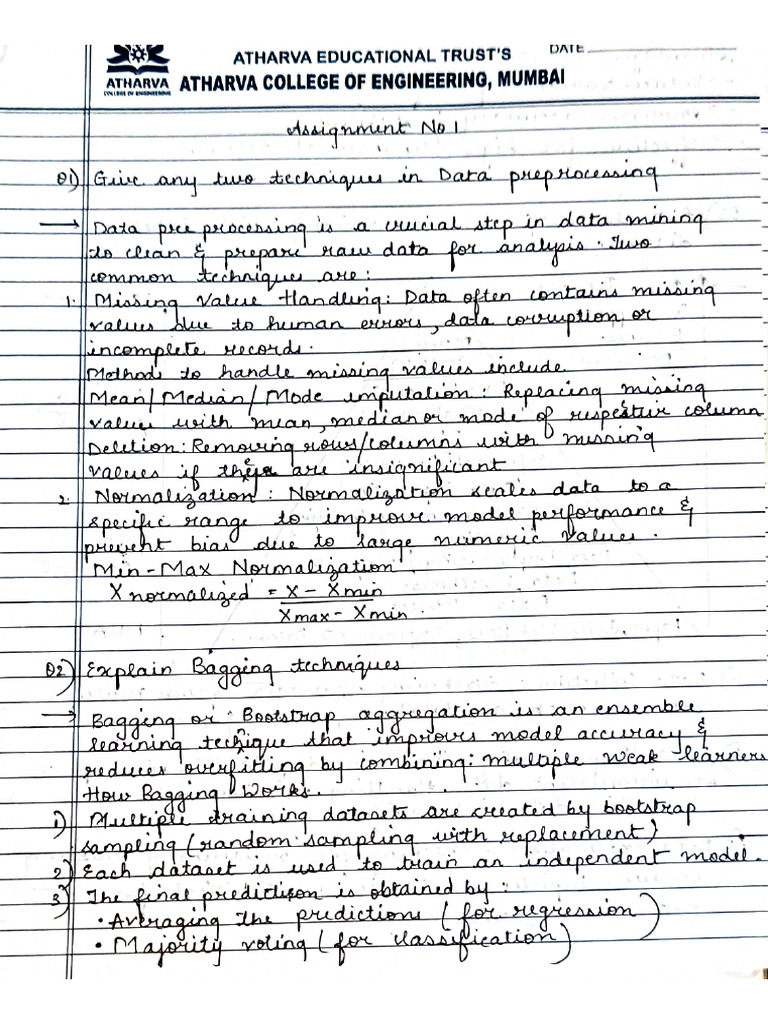 ATHARVA EDUCATIONAL TRUST'S DATE
ATHARVA
COLLEGE OF ENGINEERING
ATHARVA COLLEGE OF ENGINEERING, MUMBAI
Assignment No 1
Q1) Give any two techniques in Data preprocessing
→ Data pre processing is a crucial step in data mining
to clean & prepare raw data for analysis. Two
common techniques are:
1. Missing Value Handling: Data often contains missing
values due to human errors, data corruption or
incomplete records.
Methods to handle missing values include
Mean/Median/Mode imputation: Replacing missing
values with mean, median or mode of respective column
Deletion: Removing rows/columns with missing
values if they are insignificant
2. Normalization: Normalization scales data to a
specific range to improve model performance &
prevent bias due to large numeric values.
Min-Max Normalization
X normalized = X - Xmin
Xmax - Xmin
Q2) Explain Bagging techniques
→ Bagging or Bootstrap aggregation is an ensemble
learning technique that improves model accuracy &
reduces overfitting by combining: multiple weak learners
How Bagging Works.
1) Multiple training datasets are created by bootstrap
sampling (random sampling with replacement)
2) Each dataset is used to train an independent model.
3) The final prediction is obtained by:
• Averaging the predictions (for regression)
• Majority voting (for classification)